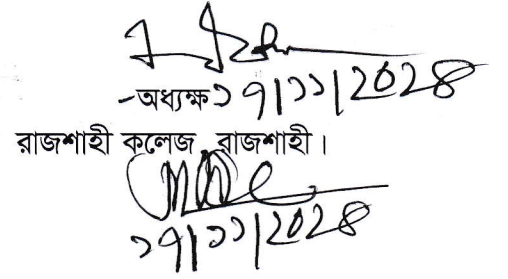 -অধ্যক্ষ ১৭|১১|২০২৪
রাজশাহী কলেজ, রাজশাহী।
১৭|১১|২০২৪